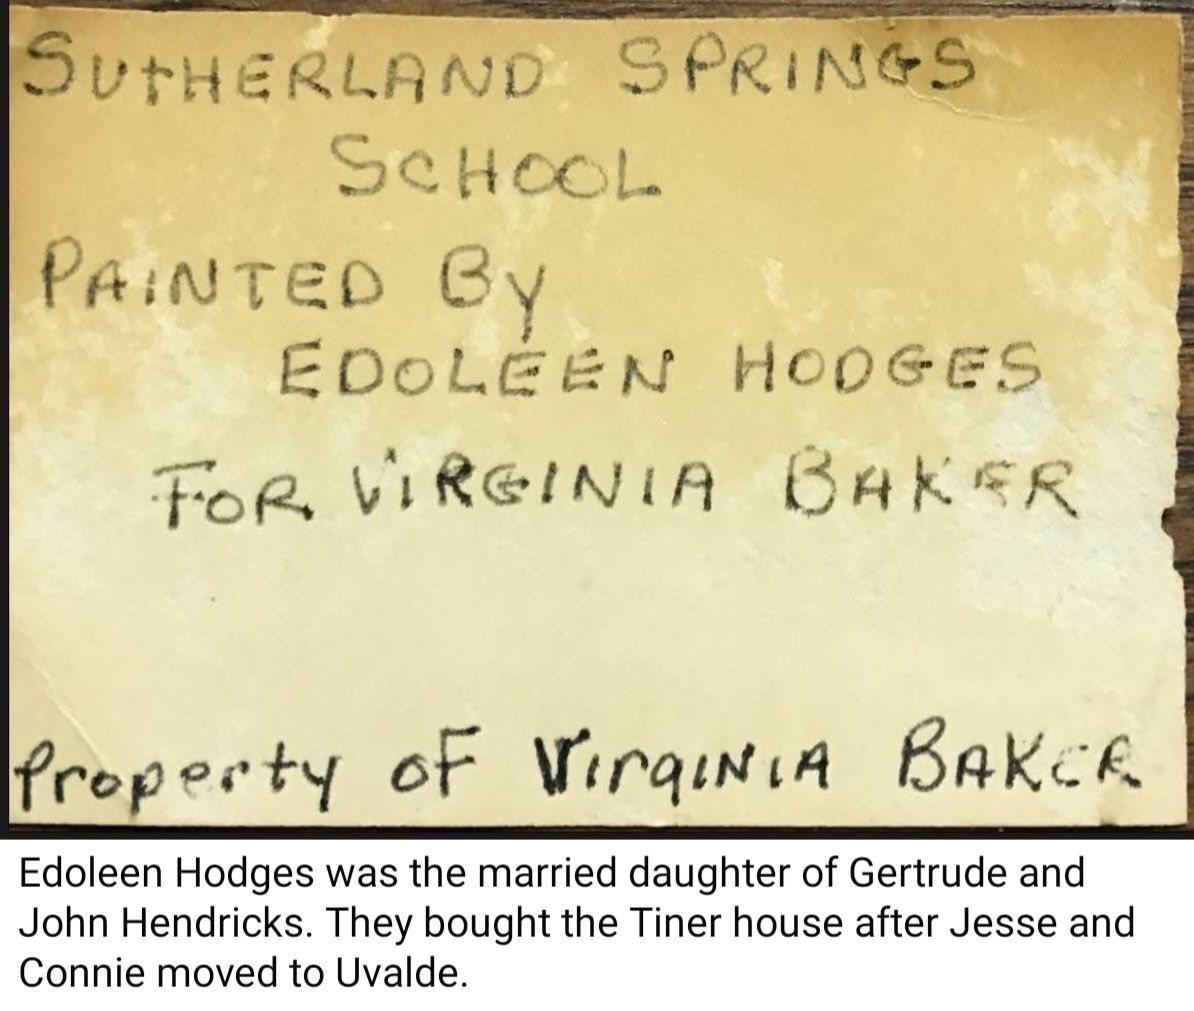 SUtHERLAND SPRINGS
SCHOOL
PAINTED By
EDOLEEN HODGES
FOR ViRGINIA BAKER
Property oF VirgiNiA BAKER
Edoleen Hodges was the married daughter of Gertrude and
John Hendricks. They bought the Tiner house after Jesse and
Connie moved to Uvalde.